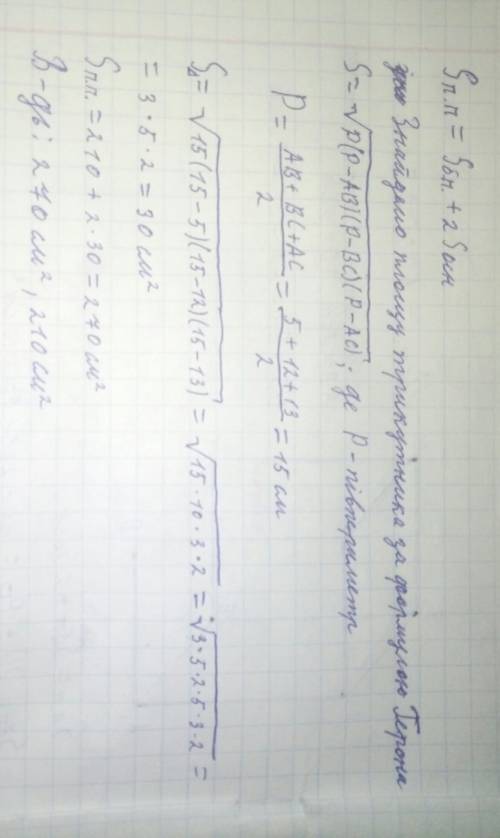 Sп.п = Sбп. + 2 Sосн
Знайдемо площу трикутника за формулою Герона
S = √P(P-AB)(P-BC)(P-AC), де P - півпериметр
P = (AB + BC + AC)/2 = (5 + 12 + 13)/2 = 15 см
S∆ = √15(15-5)(15-12)(15-13) = √15·10·3·2 = √3·5·2·5·3·2 =
= 3·5·2 = 30 см²
Sп.п. = 210 + 2·30 = 270 см²
В-дь: 270 см², 210 см²